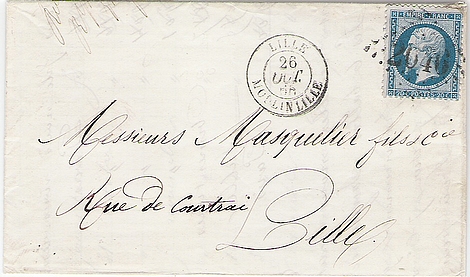 LILLE
26
OCT.
68
MOULIN LILLE
EMPIRE FRANC
20 C POSTES 20 C
2046
Messieurs Masquelier fils & Cie
Rue de Courtrai
Lille